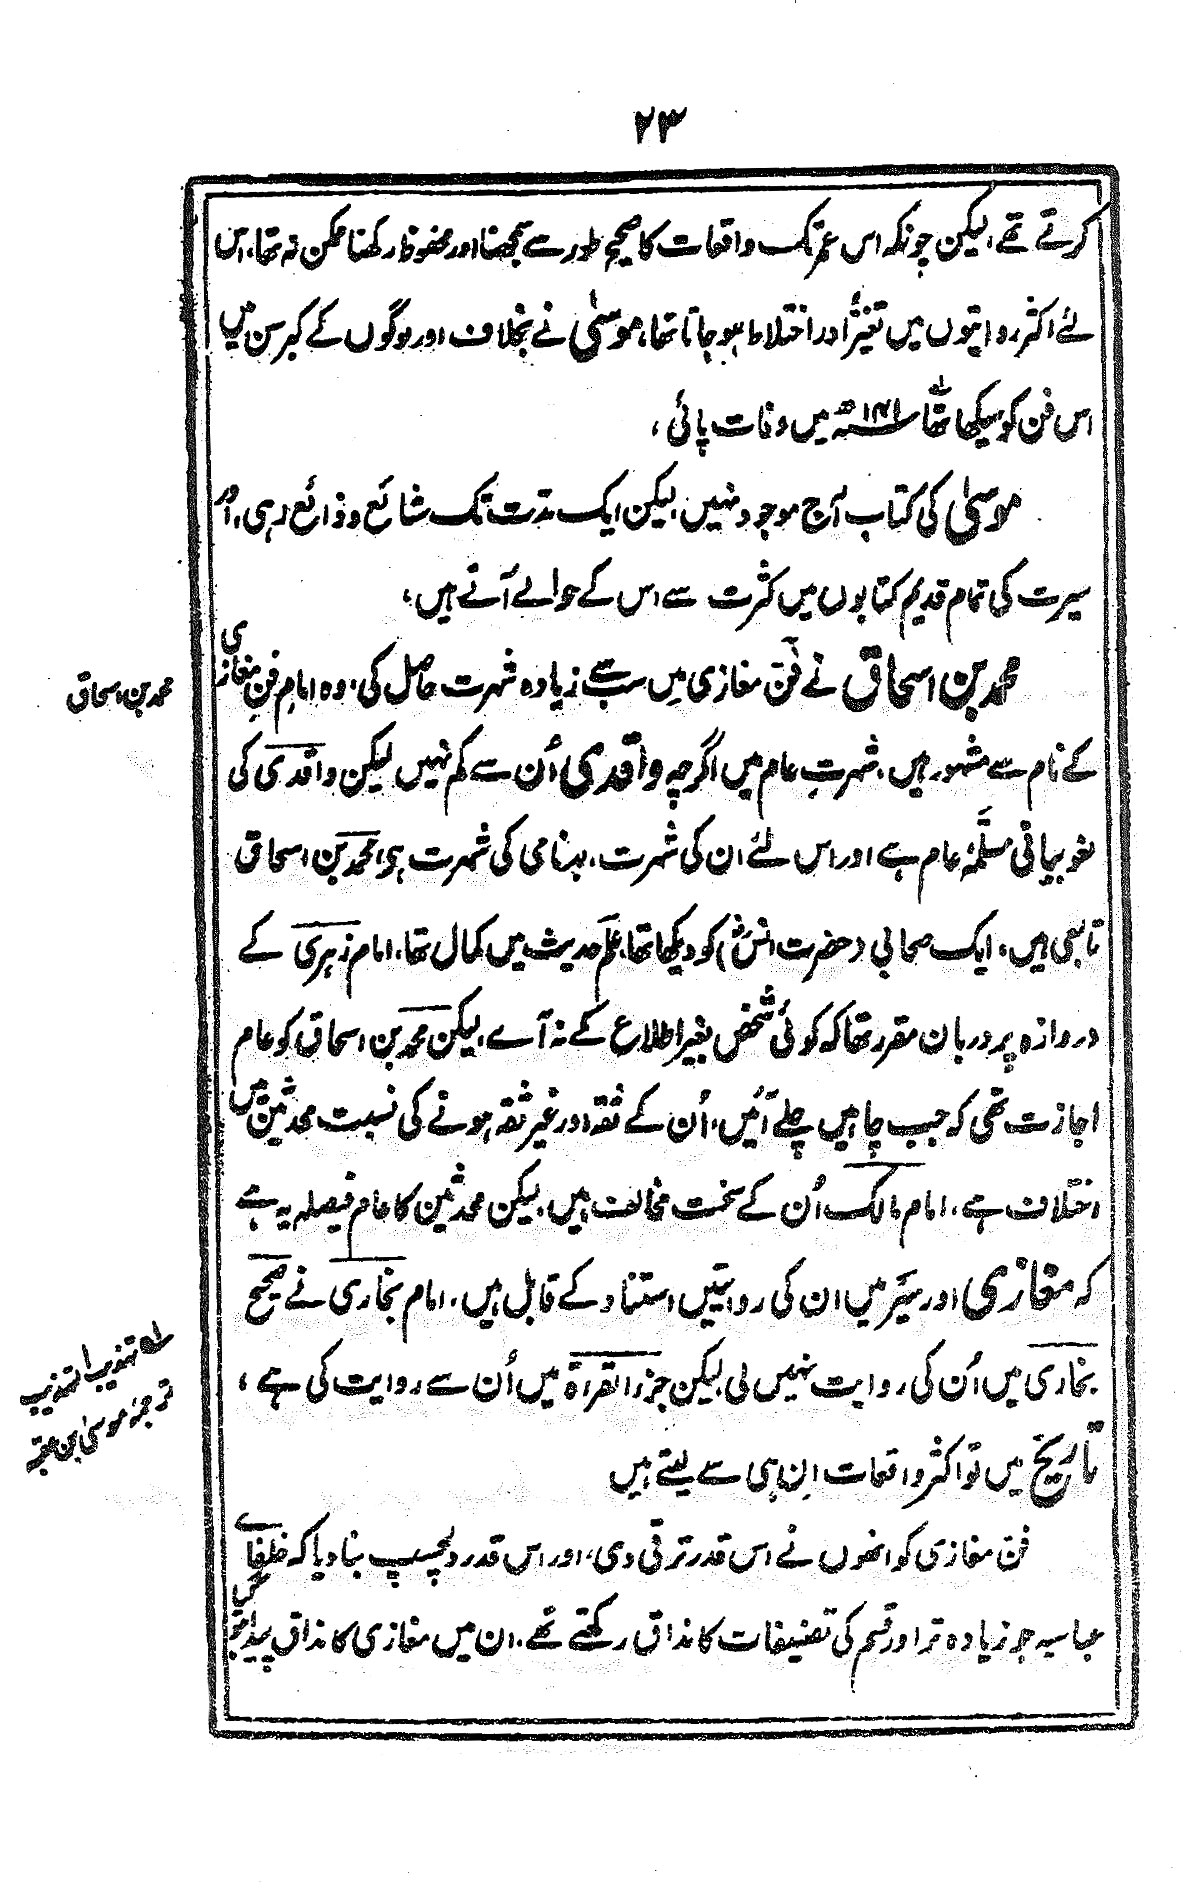 ۲۳
کرتے تھے، لیکن چونکہ اس عمر تک واقعات کا صحیح طور سے سمجھنا اور محفوظ رکھنا ممکن نہ تھا، اس
لئے اکثر روایتوں میں تغیّر اور اختلاط ہو جاتا تھا، موسیٰ نے بخلاف اور لوگوں کے کبر سن میں
اس فن کو سیکھا تھا ۱۴۱ھ میں وفات پائی،
موسیٰ کی کتاب آج موجود نہیں، لیکن ایک مدّت تک شائع و ذائع رہی، اور
سیرت کی تمام قدیم کتابوں میں کثرت سے اس کے حوالے آتے ہیں،
محمد بن اسحاق
محمد بن اسحاق نے فن مغازی میں سب سے زیادہ شہرت حاصل کی، وہ امام فنِ مغازی
کے نام سے مشہور ہیں، شہرتِ عام میں اگرچہ واقدی اُن سے کم نہیں لیکن واقدی کی
لغو بیانی مسلّمۂ عام ہے اور اس لئے ان کی شہرت، بدنامی کی شہرت ہی، محمد بن اسحاق
تابعی ہیں، ایک صحابی (حضرت انسؓ) کو دیکھا تھا، علم حدیث میں کمال تھا، امام زہری کے
دروازہ پر دربان مقرر تھا کہ کوئی شخص بغیر اطلاع کے نہ آے، لیکن محمد بن اسحاق کو عام
اجازت تھی کہ جب چاہیں چلے آئیں، اُن کے ثقہ اور غیر ثقہ ہونے کی نسبت محدثین میں
اختلاف ہے، امام مالک اُن کے سخت مخالف ہیں، لیکن محدثین کا عام فیصلہ یہ ہے
کہ مغازی اور سِیَر میں ان کی روایتیں استناد کے قابل ہیں، امام بخاری نے صحیح
بخاری میں اُن کی روایت نہیں لی، لیکن جزء القراءۃ میں اُن سے روایت کی ہے،
تاریخ میں تو اکثر واقعات اِن ہی سے لیتے ہیں
فن مغازی کو انھوں نے اس قدر ترقی دی، اور اس قدر دلچسپ بنا دیا کہ خلفاے
عباسیہ جو زیادہ تر اور قسم کی تصنیفات کا مذاق رکھتے تھے، ان میں مغازی کا مذاق پیدا ہو
لہ تہذیب التہذیب
ترجمۂ موسیٰ بن عقبہ